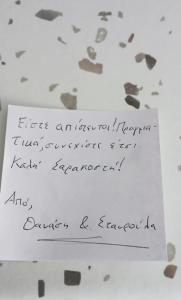 Είστε απίστευτοι! Πραγμα-
τικά, συνεχίστε έτσι
Καλή Σαρακοστή!
Από,
Θανάση & Σταυρούλα